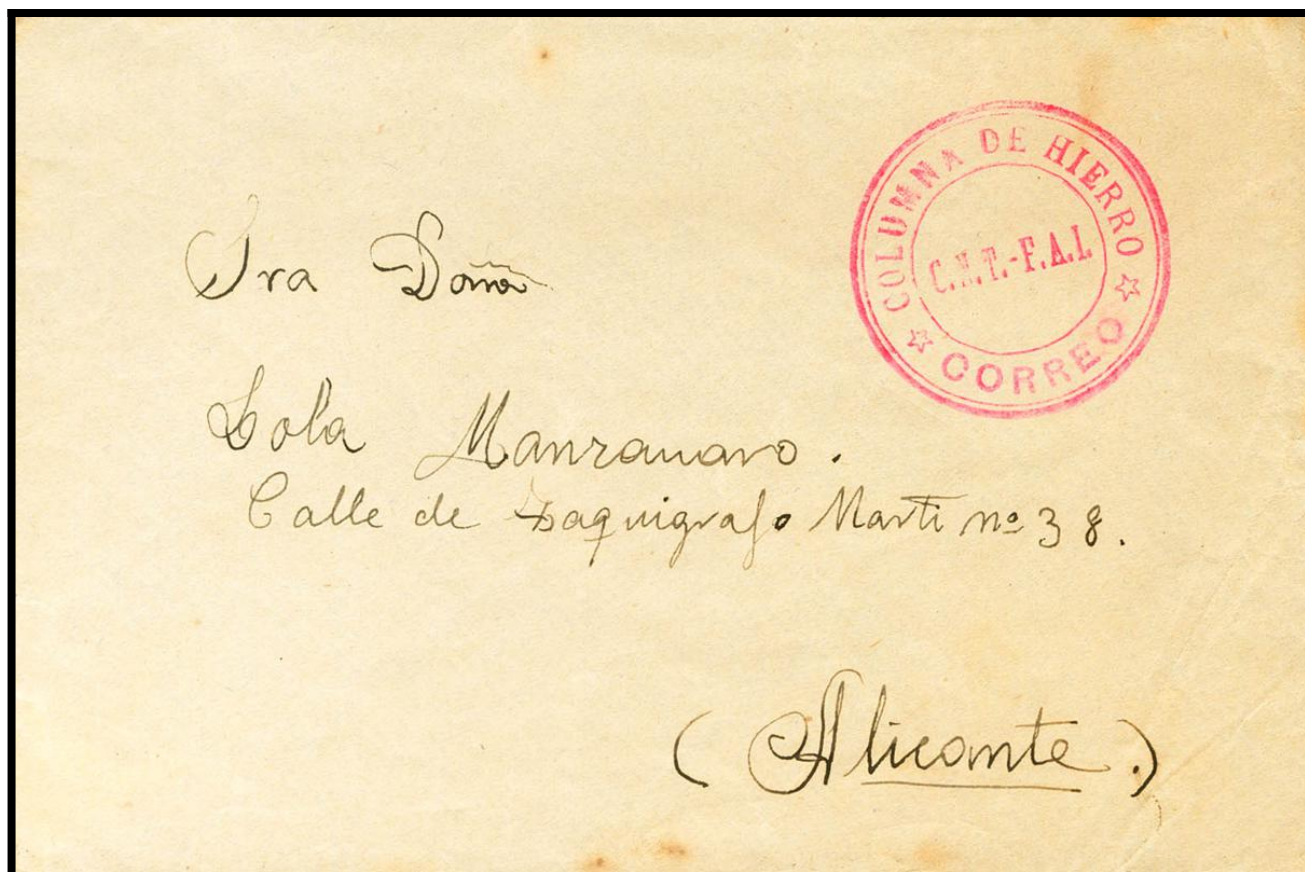 COLUMNA DE HIERRO
C.N.T.-F.A.I.
☆ CORREO ☆
Sra Doña
Lola Manzanaro.
Calle de Taquigrafo Marti nº 38.
(Alicante.)